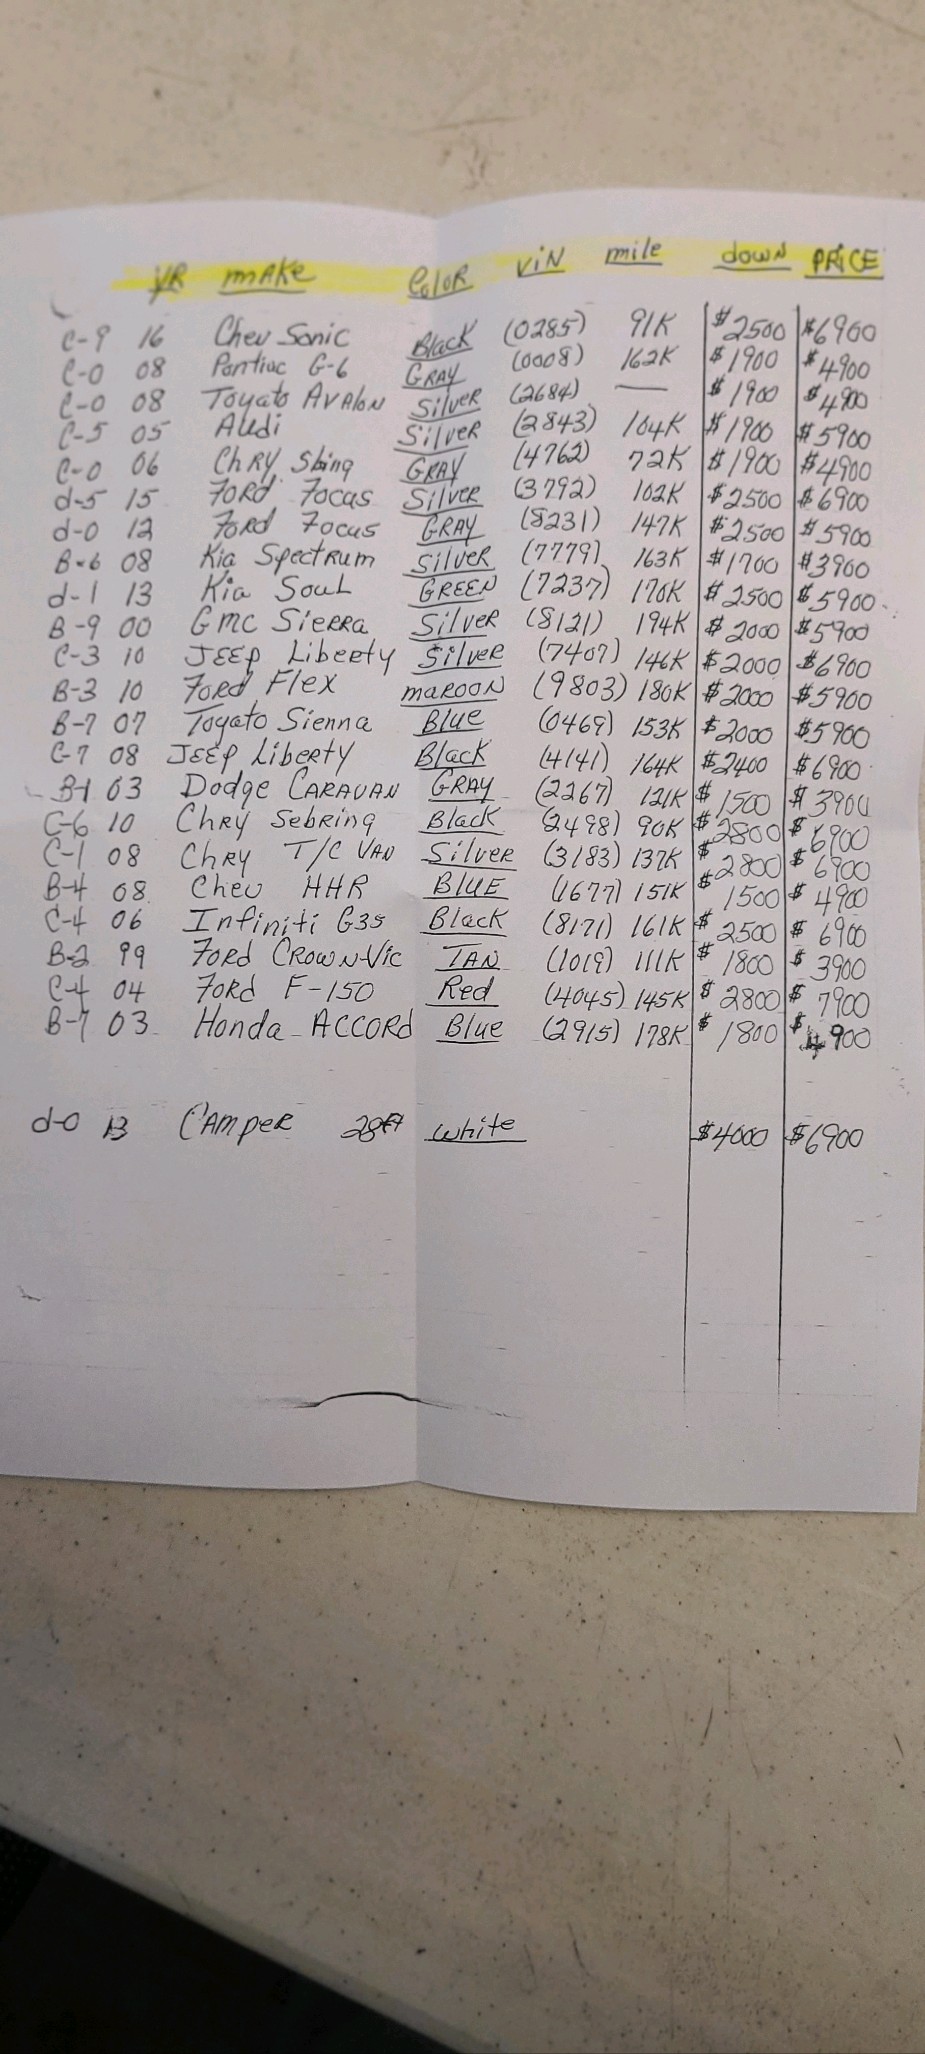 YR make Color ViN mile down PRiCE
C-9 16 Chev Sonic Black (0285) 91K $2500 $6900
C-0 08 Pontiac G-6 GRAY (0008) 162K $1900 $4900
C-0 08 Toyato AvAloN Silver (2684) — $1900 $4900
C-5 05 Audi Silver (2843) 104K $1900 $5900
C-0 06 ChRY Sbing GRAY (4762) 72K $1900 $4900
d-5 15 FORd Focus Silver (3792) 102K $2500 $6900
d-0 12 Ford Focus GRAY (8231) 147K $2500 $5900
B-6 08 Kia Spectrum Silver (7779) 163K $1700 $3900
d-1 13 Kia Soul GREEN (7237) 170K $2500 $5900
B-9 00 Gmc Sierra Silver (8121) 194K $2000 $5900
C-3 10 JEEp Liberty Silver (7407) 146K $2000 $6900
B-3 10 Ford Flex maROON (9803) 180K $2000 $5900
B-7 07 Toyato Sienna Blue (0469) 153K $2000 $5900
C-7 08 JEEp Liberty Black (4141) 164K $2400 $6900
B-1 03 Dodge CARAVAN GRAY (2267) 121K $1500 $3900
C-6 10 ChRy Sebring Black (2498) 90K $2800 $6900
C-1 08 ChRY T/C VAN Silver (3183) 137K $2800 $6900
B-4 08 Chev HHR BLUE (1677) 151K $1500 $4900
C-4 06 Infiniti G35 Black (8171) 161K $2500 $6900
B-2 99 FORd CROWN-Vic TAN (1019) 111K $1800 $3900
C-4 04 FORd F-150 Red (4045) 145K $2800 $7900
B-7 03 Honda ACCORd Blue (2915) 178K $1800 $4900
d-0 13 CAmpeR 28ft white $4000 $6900